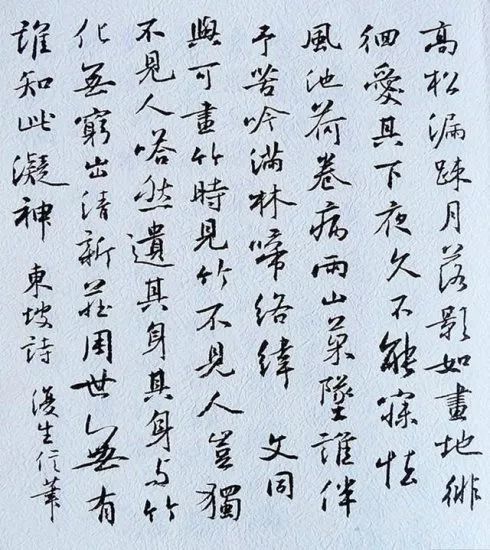 高松漏疎月落影如畫地徘
徊愛其下夜久不能寐怯
風池荷卷病雨山菓墜誰伴
予苦吟滿林啼絡緯 文同
與可畫竹時見竹不見人豈獨
不見人嗒然遺其身其身与竹
化無窮出清新莊周世無有
誰知此凝神 東坡詩 生信筆